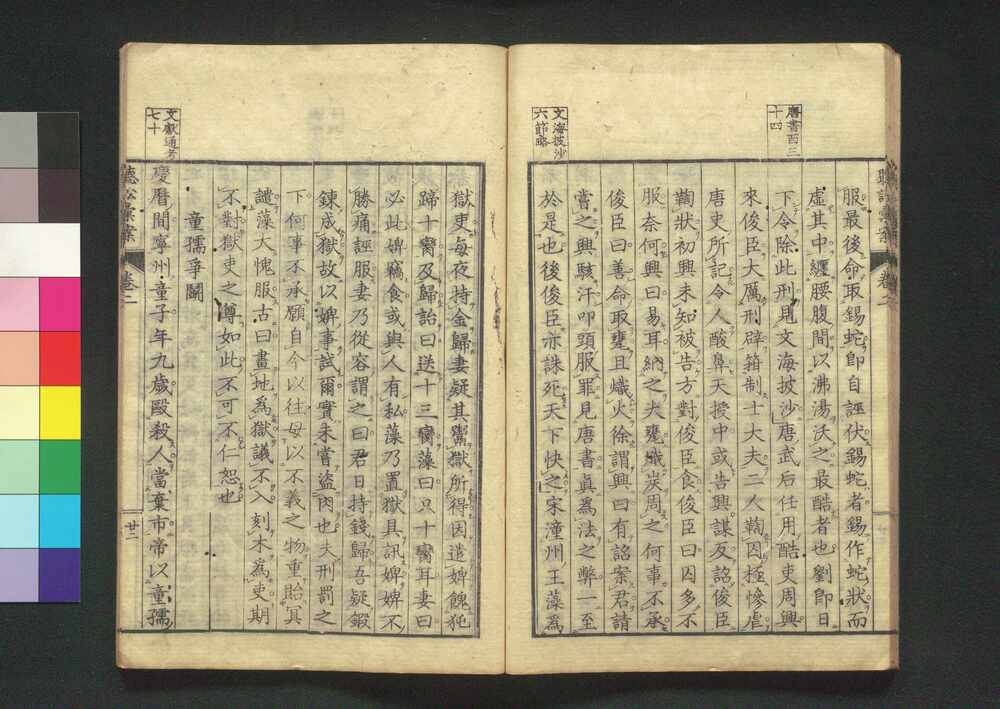 唐書百三
十四
服最後命取錫蛇卽自誣伏錫蛇者錫作蛇狀而
虛其中纏腰腹間以沸湯沃之最酷者也劉卽日
下令除此刑見文海披沙唐武后任用酷吏周興
來俊臣大厲刑辟箝制士大夫二人鞫囚極慘虐
唐史所記令人酸鼻天授中或告興謀反詔俊臣
鞫狀初興未知被告方對俊臣食俊臣曰囚多不
服奈何興曰易耳納之大甕熾炭周之何事不承
俊臣曰善命取甕且熾火徐謂興曰有詔案君請
嘗之興駭汗叩頭服罪見唐書眞爲法之弊一至
於是也後俊臣亦誅死天下快之宋潼州王藻爲
文海披沙
六節略
獄吏每夜持金歸妻疑其鬻獄所得因遣婢餽㹠
蹄十臠及歸詒曰送十三臠藻曰只十臠耳妻曰
必此婢竊食或與人有私藻乃置獄具訊婢婢不
勝痛誣服妻乃從容謂之曰君日持錢歸吾疑鍜
鍊成獄故以婢事試爾實未嘗盜肉也夫刑罰之
下何事不承願自今以往毋以不義之物重貽冥
譴藻大愧服古曰畫地為獄議不入刻木為吏期
不對獄吏之尊如此不可不仁恕也
童孺爭鬭
慶曆間寧州童子年九歲毆殺人當棄市帝以童孺
文獻通考
七十
聽訟彙案
卷二
廿二